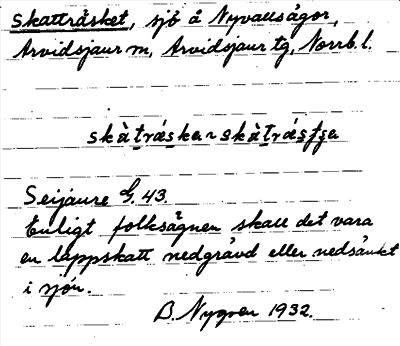 Skatträsket, sjö å Nyvallsågor,
Arvidsjaur m, Arvidsjaur tg, Norrb. l.
skàtráska ~ skàtrásfsa
Seijaure G. 43.
Enligt folksägnen skall det vara
en lappskatt nedgrävd eller nedsänkt
i sjön.
B. Nygren 1932.